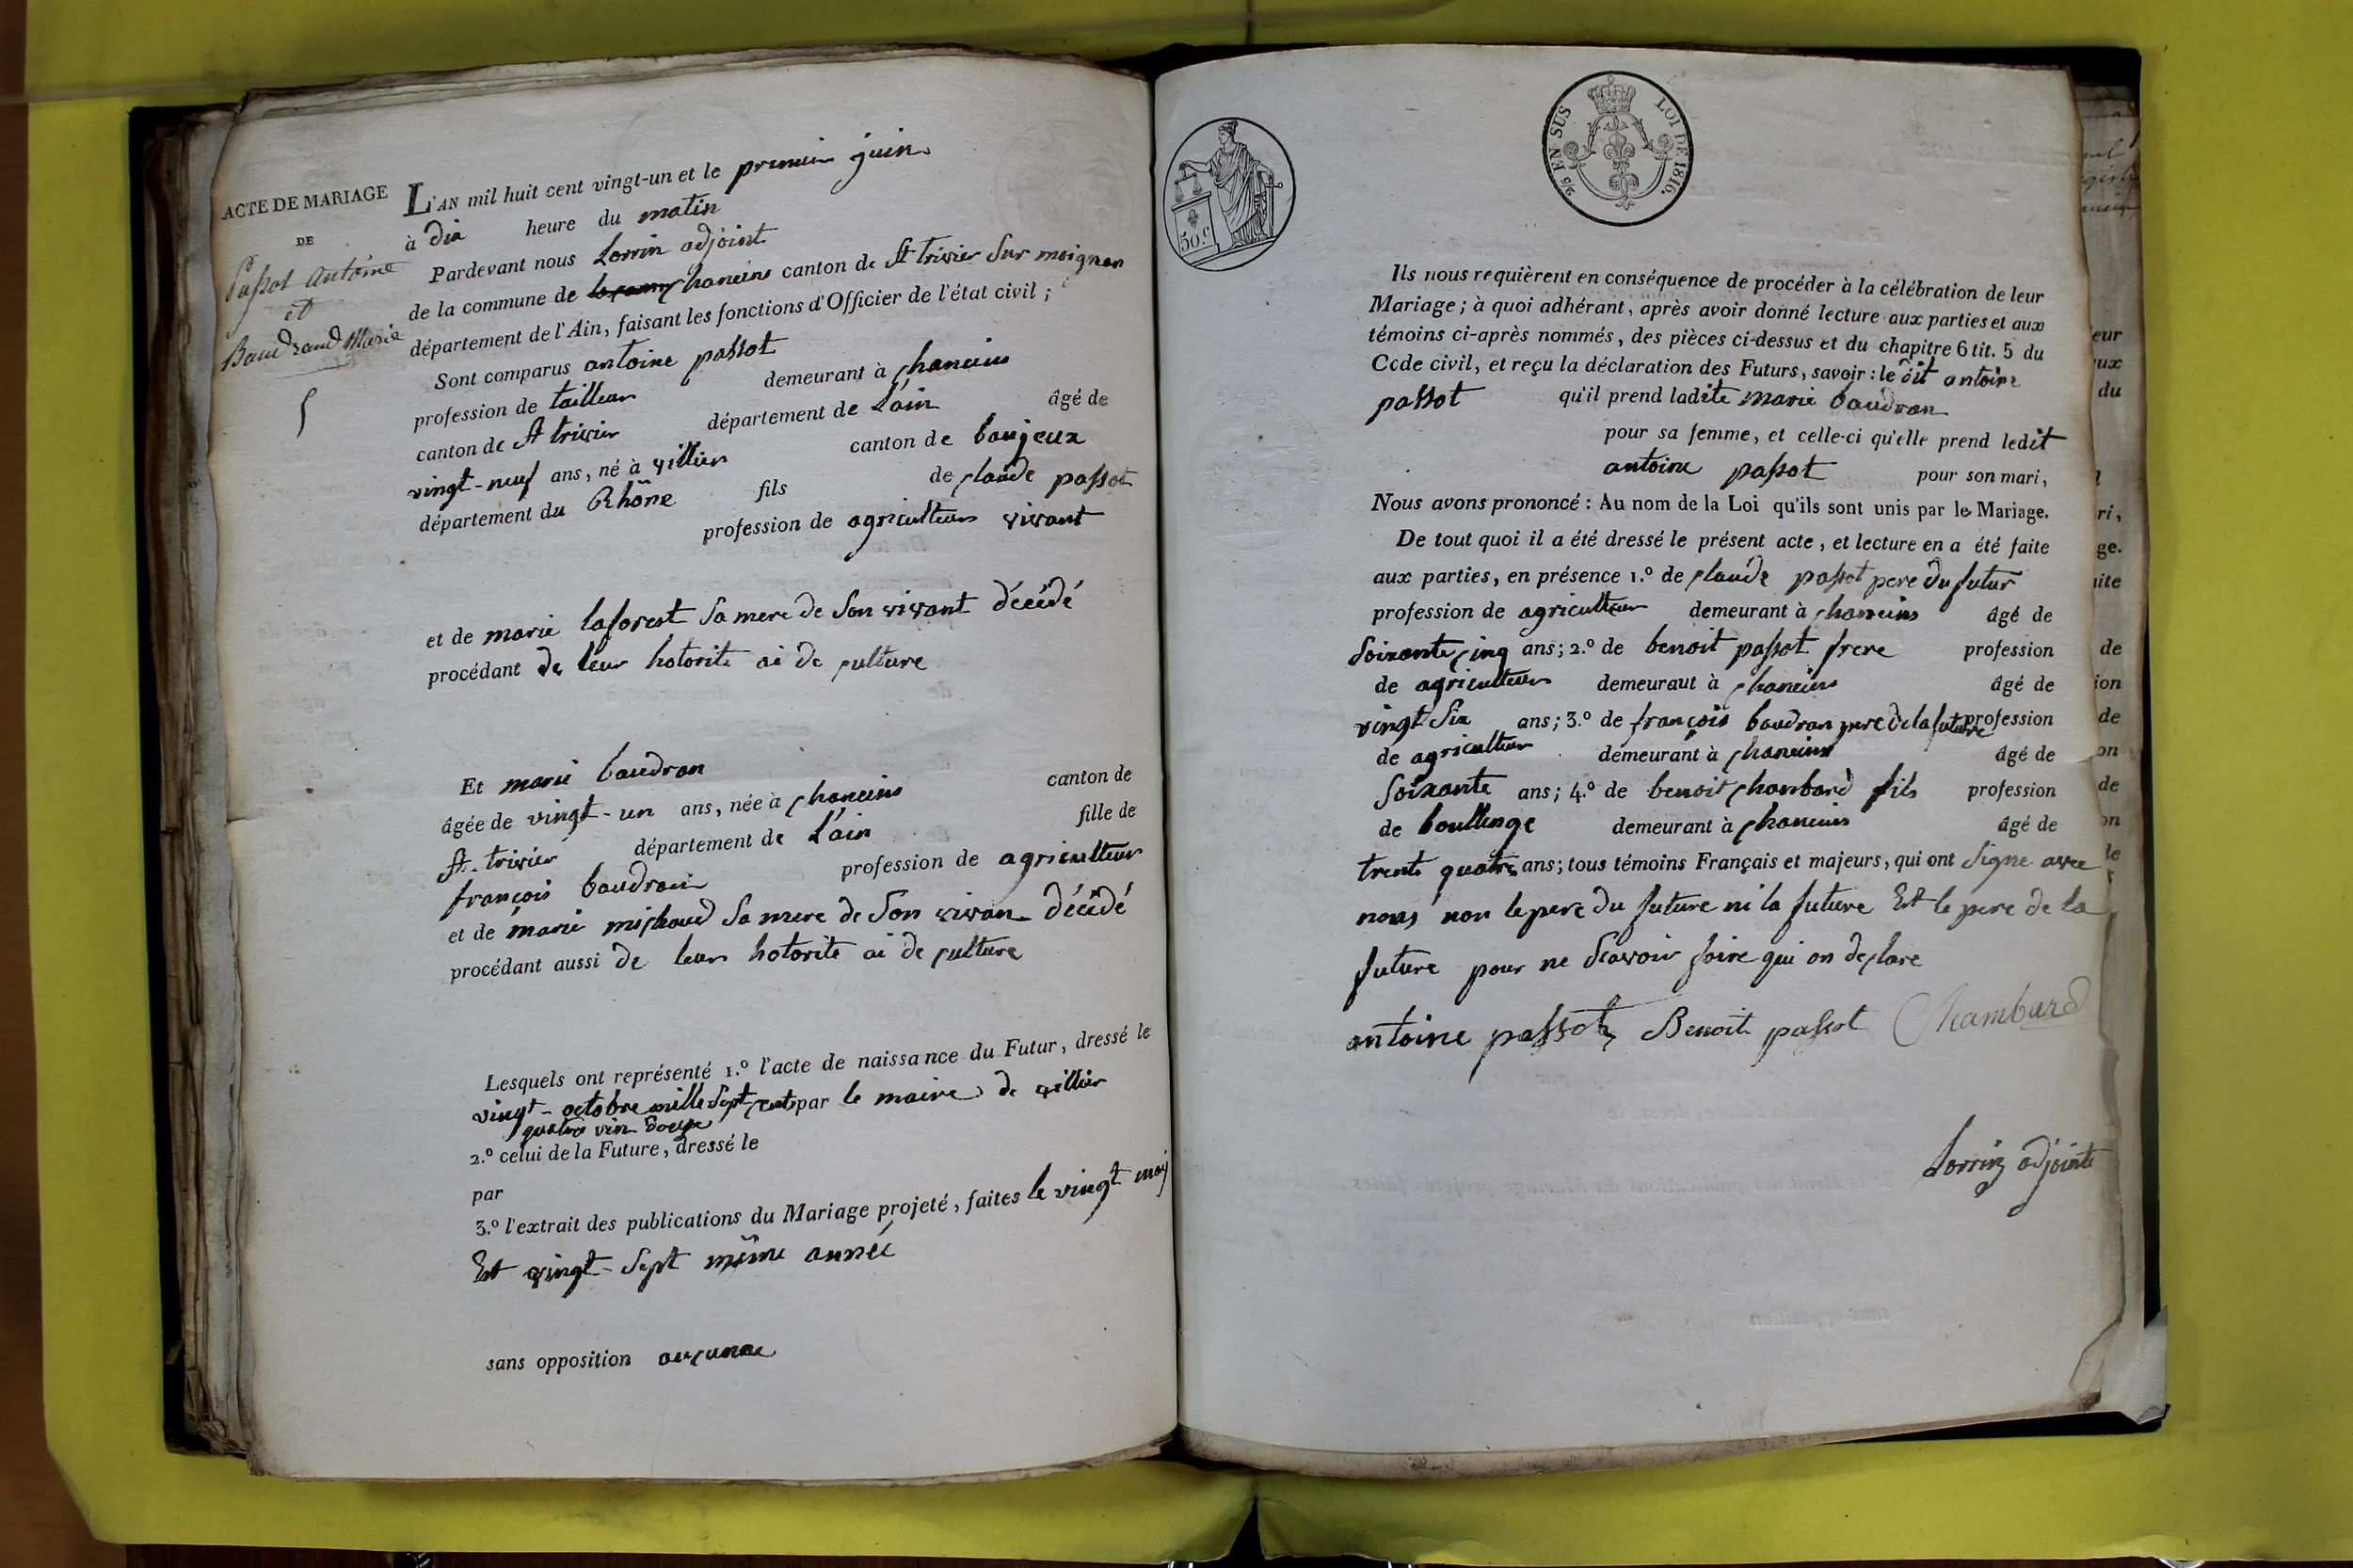 ACTE DE MARIAGE
DE
Passot antoine
et
Baudrand Marie
5
L'AN mil huit cent vingt-un et le premier juin
à dix heure du matin
Pardevant nous Lorrin adjoint
de la commune de chaneins canton de St trivier Sur moignan
département de l'Ain, faisant les fonctions d'Officier de l'état civil ;
Sont comparus antoine passot
profession de tailleur demeurant à chaneins
canton de St trivier département de L'ain âgé de
vingt-neuf ans, né à villier canton de baujeux
département du Rhône fils de claude passot
profession de agriculteur vivant
et de marie laforest Sa mere de Son vivant décédé
procédant de leur hotorite ai de culture
Et marie baudran
âgée de vingt-un ans, née à chaneins canton de
St. trivier département de L'ain fille de
françois baudran profession de agriculteur
et de marie michaud Sa mere de Son vivan décédé
procédant aussi de leur hotorite ai de culture
Lesquels ont représenté 1.º l'acte de naissance du Futur, dressé le
vingt-octobre mille Sept cents par le maire de villier
quatre vin douze
2.º celui de la Future, dressé le
par
3.º l'extrait des publications du Mariage projeté, faites le vingt may
Et vingt-Sept même année
sans opposition aucunne
50.c
2/5 EN SUS LOI DE 1816.
Ils nous requièrent en conséquence de procéder à la célébration de leur
Mariage ; à quoi adhérant, après avoir donné lecture aux parties et aux
témoins ci-après nommés, des pièces ci-dessus et du chapitre 6 tit. 5 du
Code civil, et reçu la déclaration des Futurs, savoir : le dit antoine
passot qu'il prend ladite marie baudran
pour sa femme, et celle-ci qu'elle prend ledit
antoine passot pour son mari,
Nous avons prononcé : Au nom de la Loi qu'ils sont unis par le Mariage.
De tout quoi il a été dressé le présent acte, et lecture en a été faite
aux parties, en présence 1.º de claude passot pere du futur
profession de agriculteur demeurant à chaneins âgé de
Soixante cinq ans ; 2.º de benoit passot frere profession
de agriculteur demeuraut à chaneins âgé de
vingt Six ans ; 3.º de françois baudran pere de la future profession
de agriculteur demeurant à chaneins âgé de
Soixante ans ; 4.º de benoit chambard fils profession
de boullenge demeurant à chaneins âgé de
trente quatre ans ; tous témoins Français et majeurs, qui ont Signe avec
nous non le pere du future ni la future Et le pere de la
future pour ne Scavoir foire qui on declare
antoine passot Benoit passot Chambard
Lorrin adjointe
eur
aux
du
ri,
ge.
ite
de
ion
de
on
de
on
le